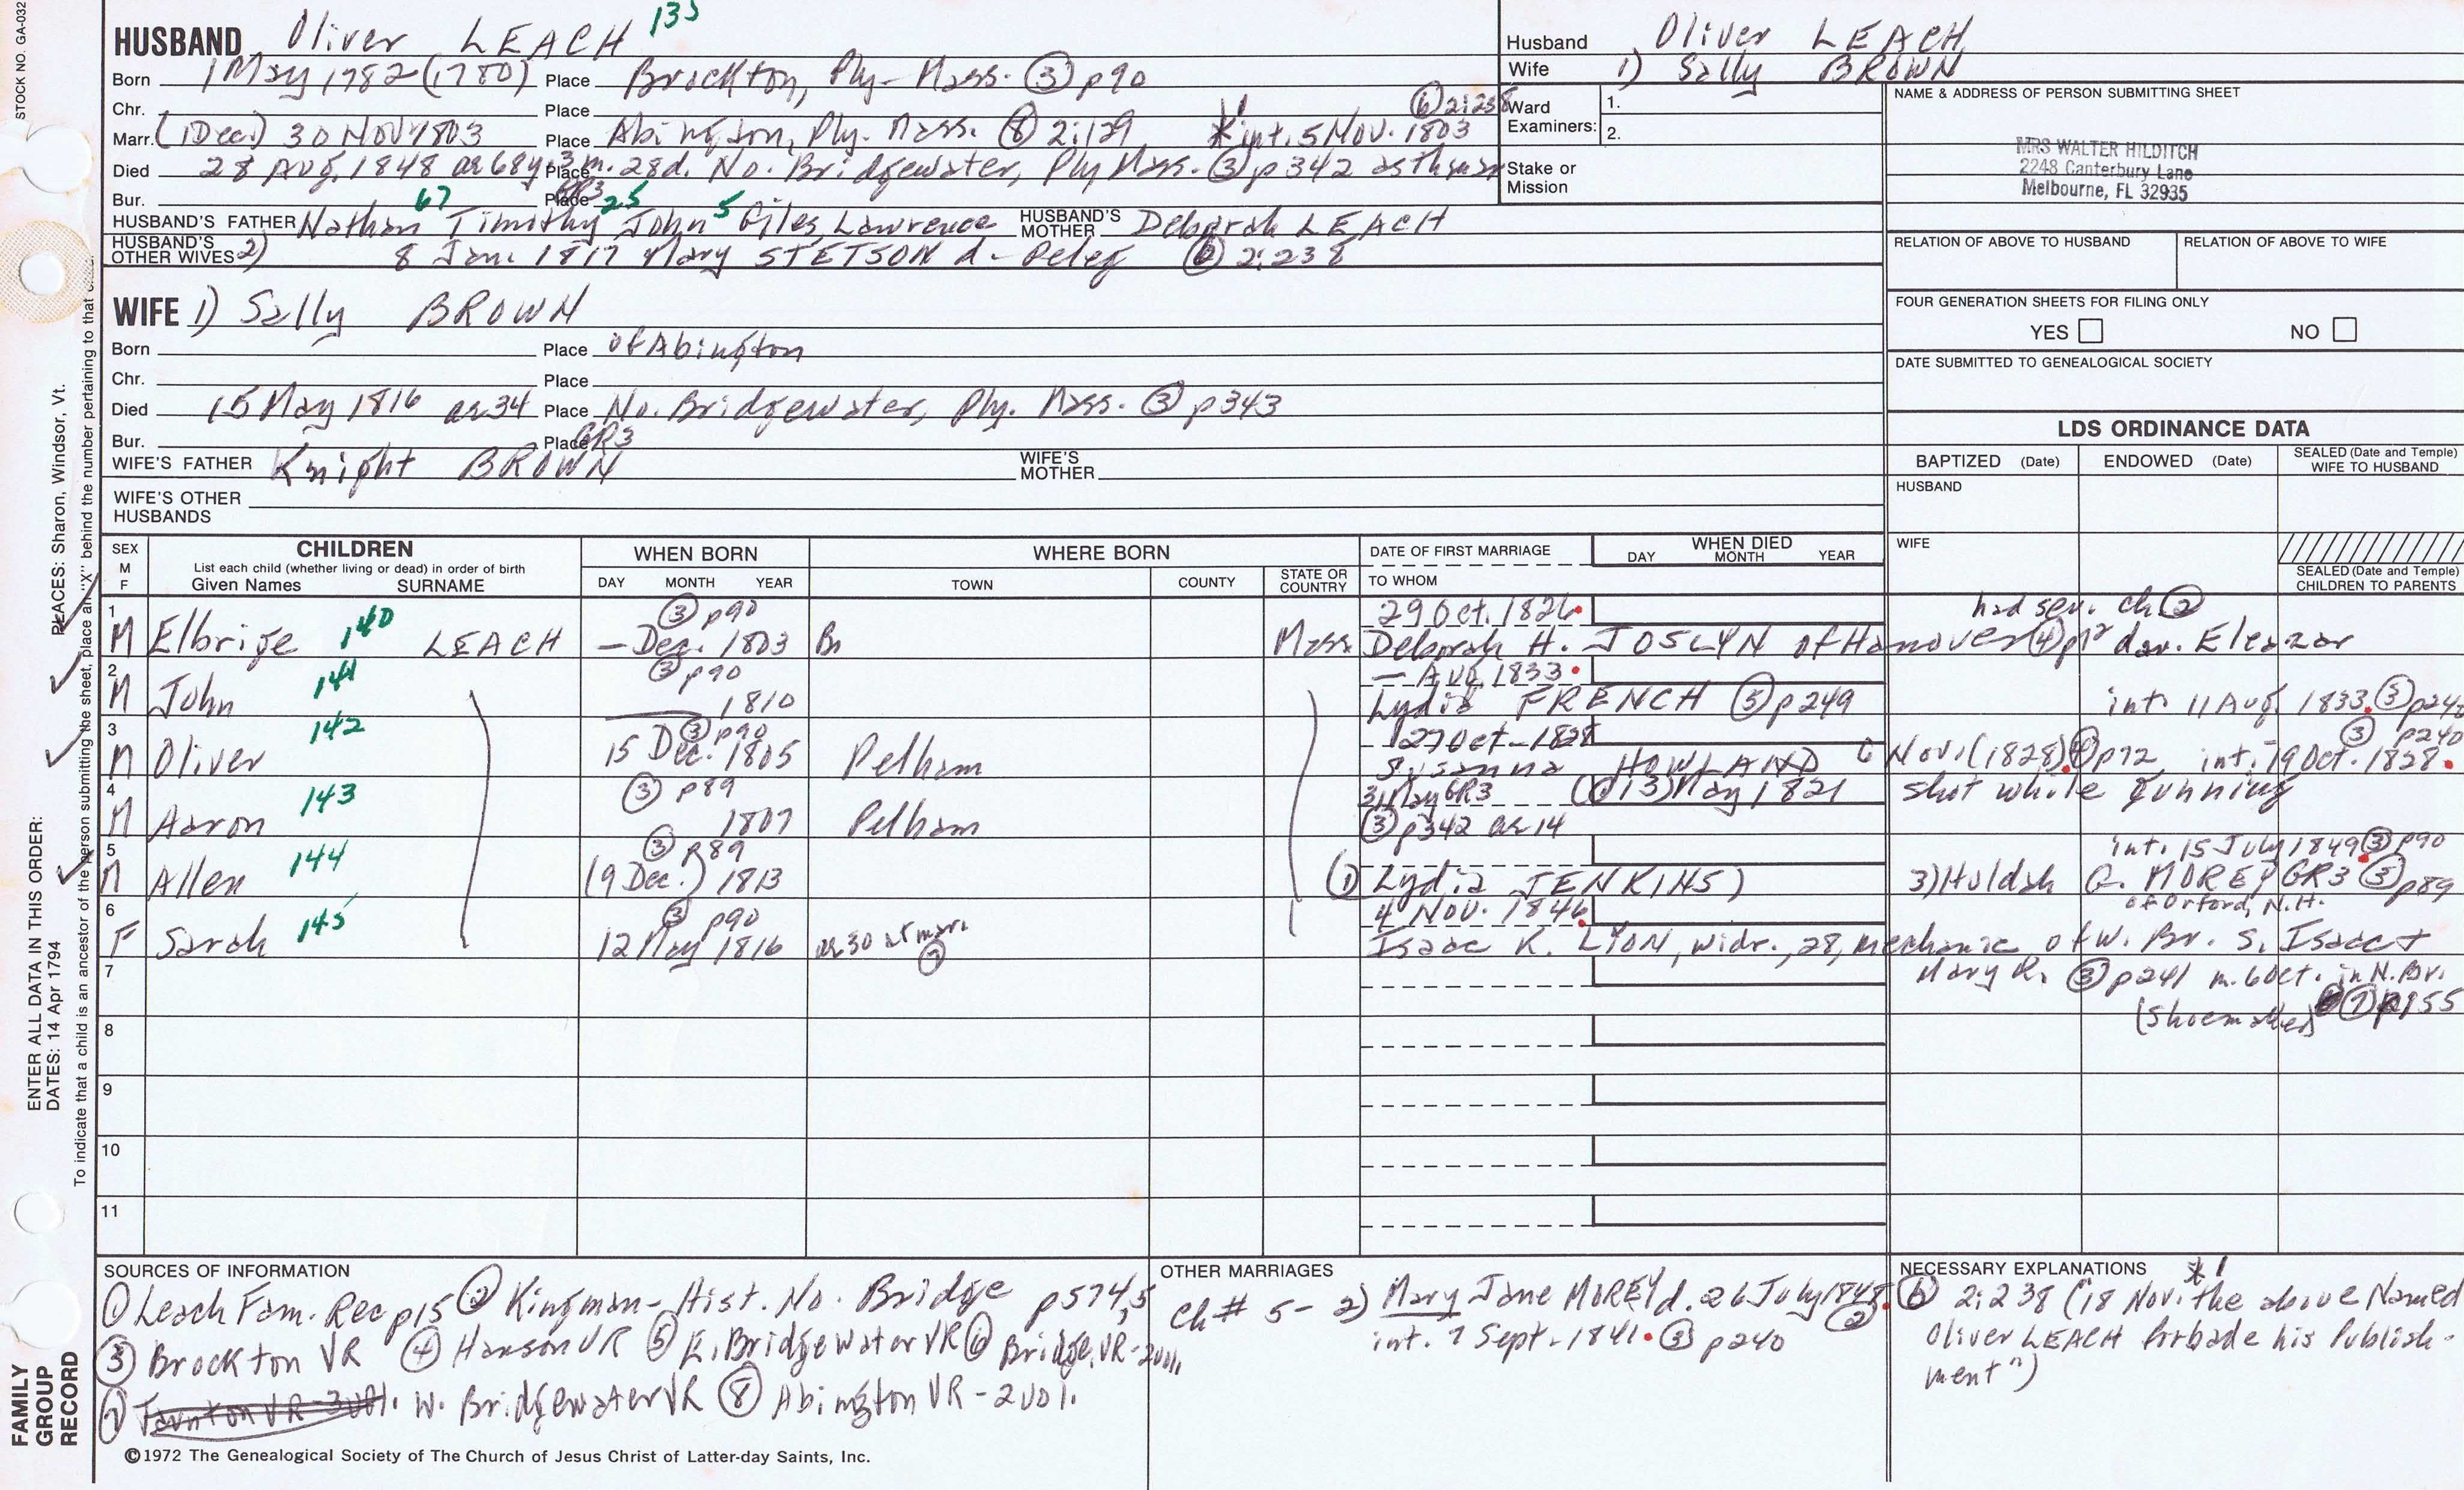 STOCK NO. GA-032
HUSBAND Oliver LEACH 135
Born 1 May 1782 (1780) Place Brockton, Ply- Mass. ③ p90
Chr. Place ⑥ 2:238
Marr. (1 Dec.) 30 Nov 1803 Place Abington, Ply. Mass. ⑧ 2:129 *1 int. 5 Nov. 1803
Died 28 Aug. 1848 ae 68y. 3m. 28d. Place No. Bridgewater, Ply Mass. ③ p342
Bur. Place GR3
HUSBAND'S FATHER Nathan 67 Timothy 25 John 5 Giles Lawrence HUSBAND'S MOTHER Deborah LEACH
HUSBAND'S OTHER WIVES 2) 8 Jan. 1817 Mary STETSON d- Peleg ⑥ 2:238
Husband Oliver LEACH
Wife 1) Sally BROWN
Ward 1.
Examiners: 2.
Stake or
Mission
NAME & ADDRESS OF PERSON SUBMITTING SHEET
MRS WALTER HILDITCH
2248 Canterbury Lane
Melbourne, FL 32935
RELATION OF ABOVE TO HUSBAND RELATION OF ABOVE TO WIFE
FOUR GENERATION SHEETS FOR FILING ONLY
YES NO
DATE SUBMITTED TO GENEALOGICAL SOCIETY
WIFE 1) Sally BROWN
Born Place of Abington
Chr. Place
Died 15 May 1816 ae 34 Place No. Bridgewater, Ply. Mass. ③ p343
Bur. Place GR3
WIFE'S FATHER Knight BROWN WIFE'S MOTHER
WIFE'S OTHER
HUSBANDS
LDS ORDINANCE DATA
BAPTIZED (Date) ENDOWED (Date) SEALED (Date and Temple)
WIFE TO HUSBAND
HUSBAND
WIFE
SEALED (Date and Temple)
CHILDREN TO PARENTS
SEX
M
F
CHILDREN
List each child (whether living or dead) in order of birth
Given Names SURNAME
WHEN BORN
DAY MONTH YEAR
WHERE BORN
TOWN COUNTY STATE OR COUNTRY
DATE OF FIRST MARRIAGE
TO WHOM
WHEN DIED
DAY MONTH YEAR
1 ③ p90 29 Oct. 1826 had sev. ch ②
M Elbrige 140 LEACH - Dec. 1803 Br Mass Deborah H. JOSLYN of Hanover ④ dau. Eleazar
2 ③ p90 - Aug 1833
M John 141 1810 Lydia FRENCH ⑤ p249 int. 11 Aug. 1833 ③ p240
3 ③ p90 27 Oct - 1828 ③ p240
M Oliver 142 15 Dec. 1805 Pelham Susanna HOWLAND 6 Nov. (1828) ④ p72 int. 19 Oct. 1828
4 ③ p89 31 May GR3 13) May 1821 shot while gunning
M Aaron 143 1807 Pelham ③ p342 ae 14
5 ③ p89 int. 15 July 1849 ③ p90
M Allen 144 (9 Dec.) 1813 ① Lydia JENKINS) 3) Huldah G. MOREY GR3 ③ p89
of Orford, N.H.
6 ③ p90 4 Nov. 1846
F Sarah 145 12 May 1816 ae 30 at marr. ⑦ Isaac K. LYON, widr., 28, mechanic of W. Br. s. Isaac +
7 Mary R. ③ p241 m. 6 Oct. in N. Br.
⑦ p155
8 (shoemaker)
9
10
11
SOURCES OF INFORMATION
① Leach Fam. Rec p15 ② Kingman- Hist. No. Bridge p574,5
③ Brockton VR ④ Hanson VR ⑤ E. Bridgewater VR ⑥ Bridge. VR-2vol.
⑦ Taunton VR-3vol. W. Bridgewater VR ⑧ Abington VR-2vol.
OTHER MARRIAGES
Ch # 5- 2) Mary Jane MOREY d. 26 July 1848 ②
int. 7 Sept. 1841. ③ p240
NECESSARY EXPLANATIONS *1
⑥ 2:238 ("18 Nov. the above Named
Oliver LEACH forbade his Publish-
ment")
©1972 The Genealogical Society of The Church of Jesus Christ of Latter-day Saints, Inc.
FAMILY
GROUP
RECORD
ENTER ALL DATA IN THIS ORDER:
DATES: 14 Apr 1794 PLACES: Sharon, Windsor, Vt.
To indicate that a child is an ancestor of the person submitting the sheet, place an "X" behind the number pertaining to that